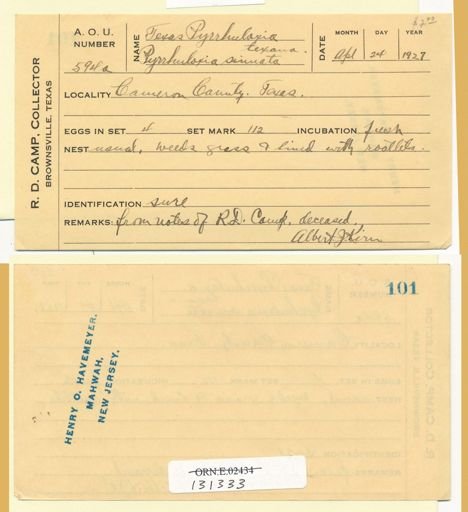 $2.00
A. O. U. NUMBER
594a
NAME Texas Pyrrhuloxia
Pyrrhuloxia sinuata texana.
DATE
MONTH DAY YEAR
Apl 24 1927
R. D. CAMP, COLLECTOR
BROWNSVILLE, TEXAS
LOCALITY Cameron County. Texas.
EGGS IN SET 4 SET MARK 112 INCUBATION fresh
NEST usual, weeds grass & lined with rootlets.
IDENTIFICATION sure
REMARKS: from notes of R.D. Camp, deceased,
Albert J Kirn
101
HENRY O. HAVEMEYER.
MAHWAH.
NEW JERSEY.
ORN.E.02434
131333